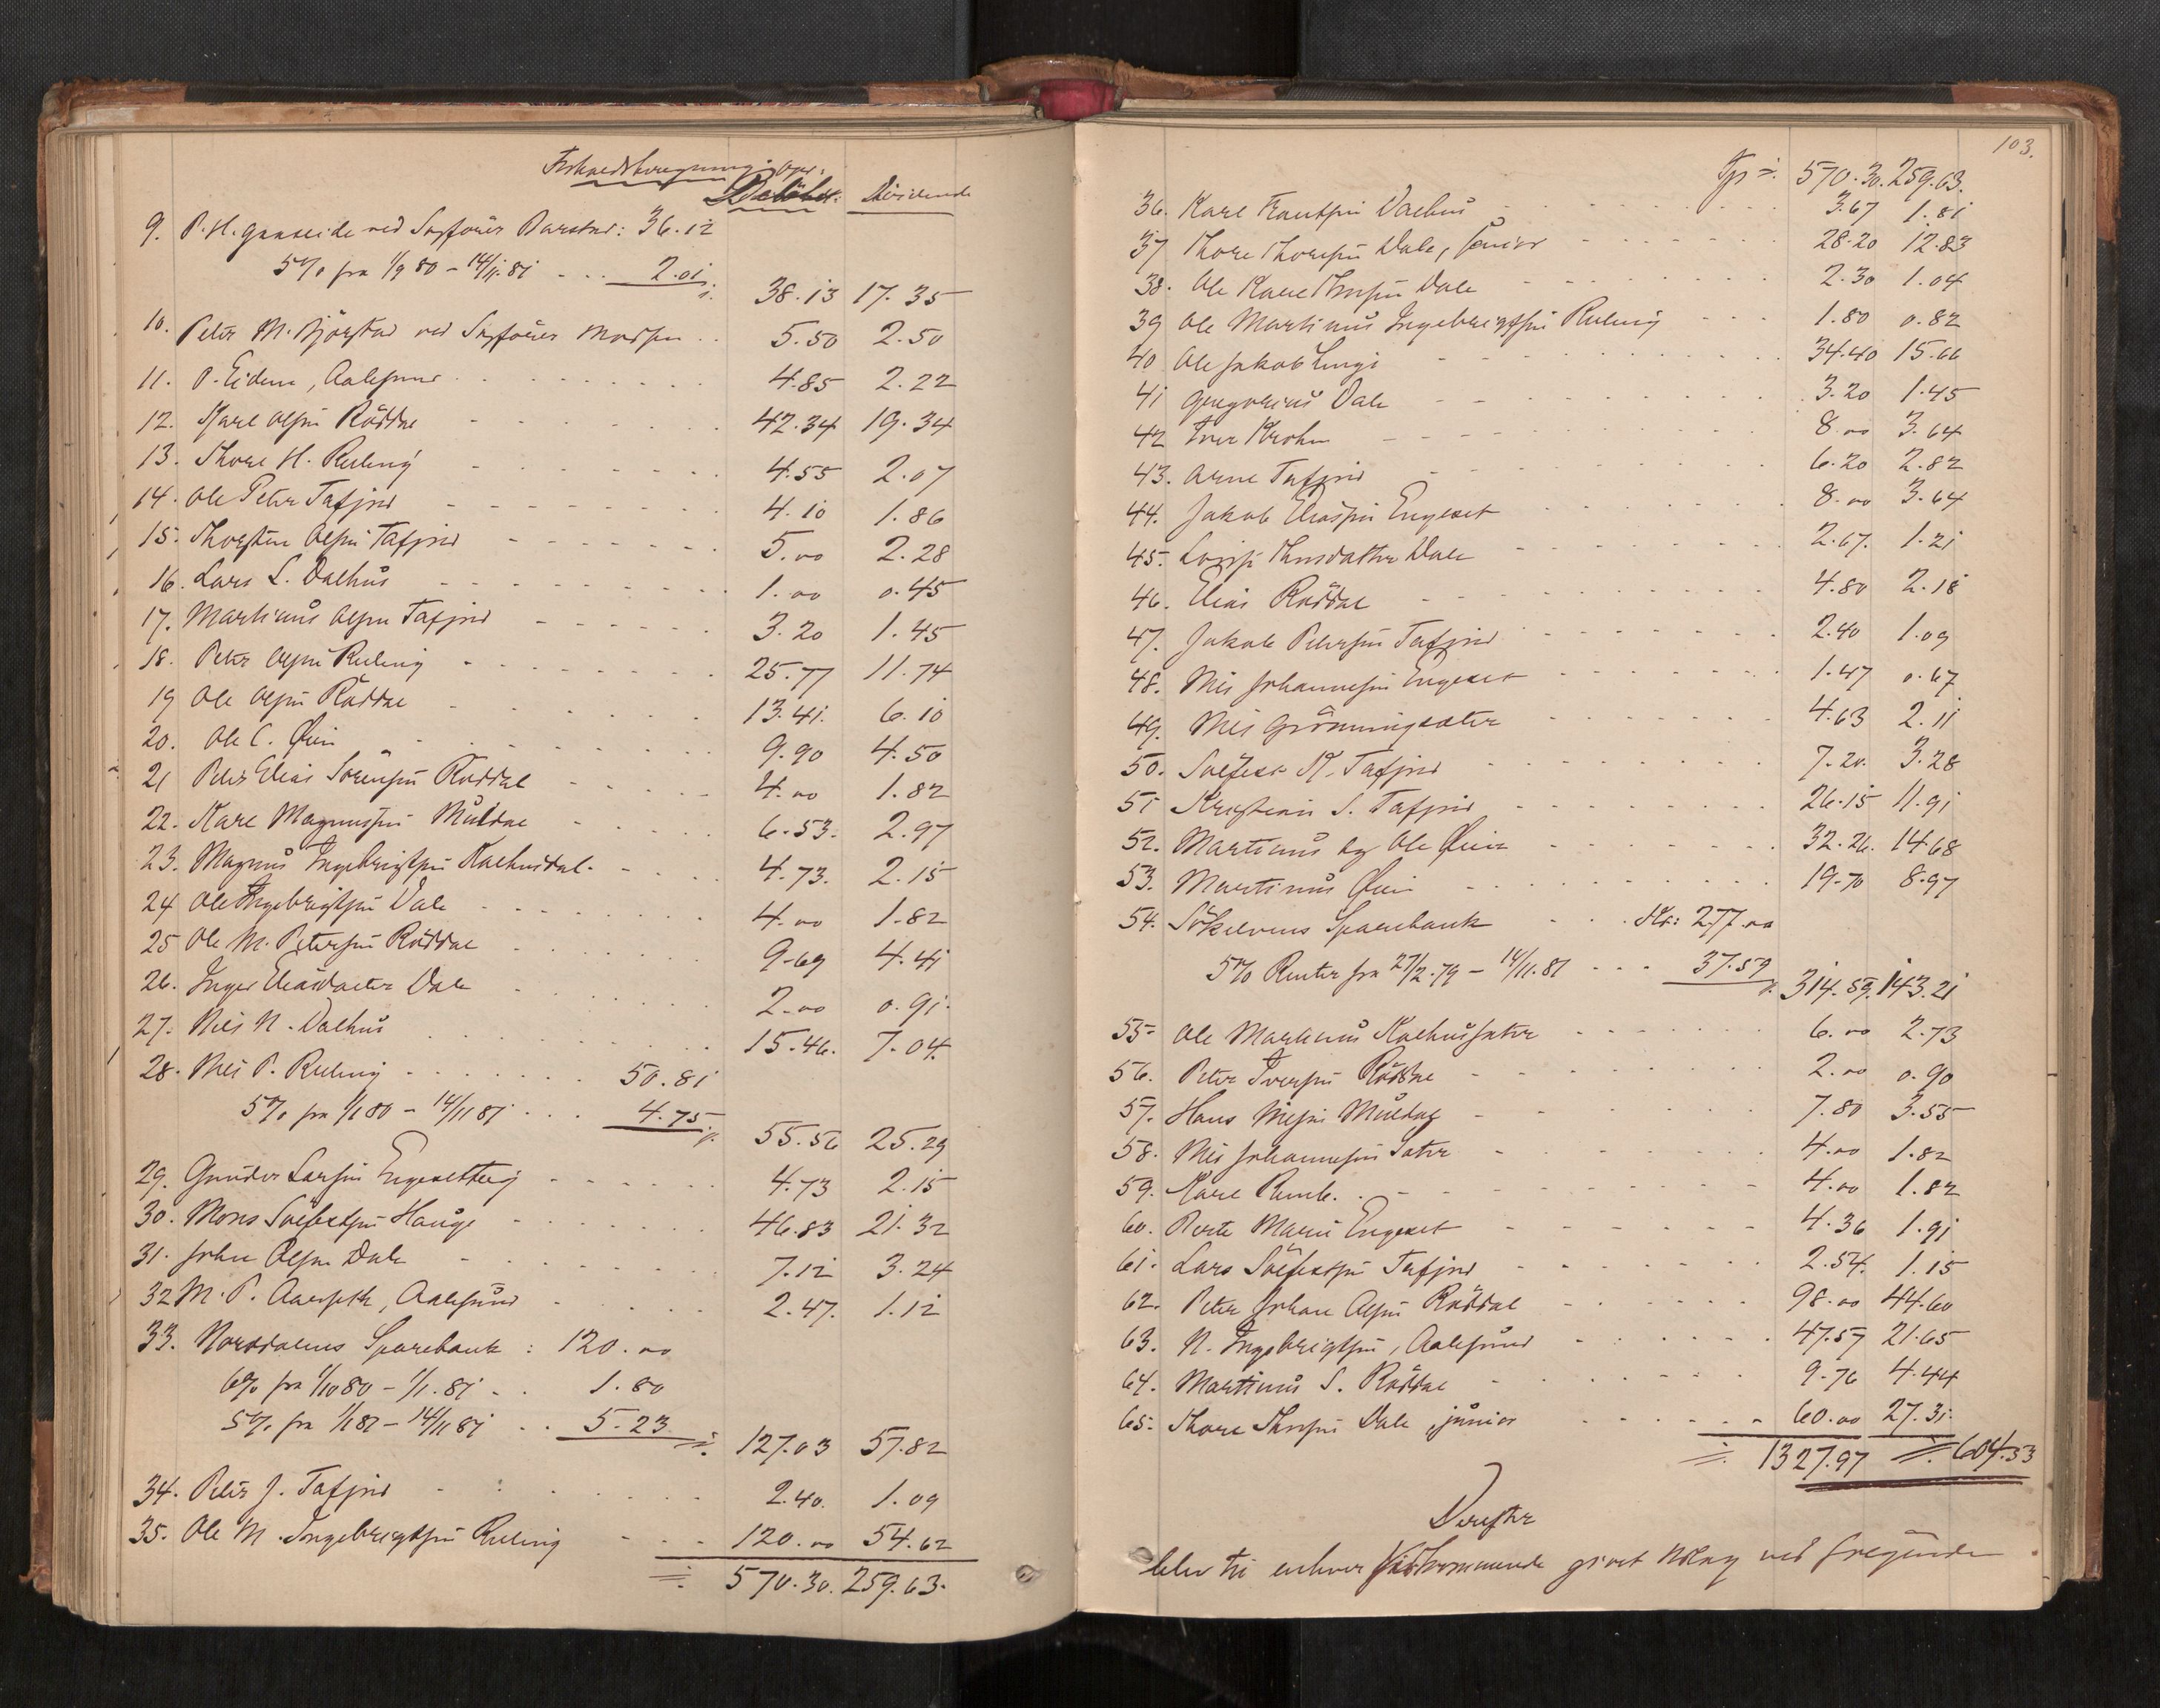 Beløbet. Dividende
9. P. H. Gaaseide ved Sagfører Barstad: 36.12
5% fra 1/9 80 – 14/11. 81 - - - 2.01
38.13 17.35
10. Peter M. Bjørstad ved Sagfører Madsen . . 5.50 2.50
11. P. Eidem, Aalesund . . . 4.85 2.22
12. Karl Olsen Röddal - - - 42.34 19.34
13. Thore H. Reling - - - 4.55 2.07
14. Ole Peter Tafjord - - - 4.10 1.86
15. Thorsten Olsen Tafjord - - - 5.00 2.28
16. Lars L. Dalhus - - - 1.00 0.45
17. Martinus Olsen Tafjord - - - 3.20 1.45
18. Peter Olsen Reling - - - 25.77 11.74
19 Ole Olsen Röddal - - - 13.41. 6.10
20. Ole C. Øien - - - 9.90 4.50
21 Peter Elias Sörensen Röddal - - - 4.00 1.82
22. Karl Magnussen Muldal - - - 6.53. 2.97
23. Magnus Ingebrigtsen Kalhusdal. - - - 4.73. 2.15
24 Ole Ingebrigtsen Dale - - - 4.00 1.82
25 Ole M. Petersen Röddal - - - 9.69 4.41
26. Inger Eliasdatter Dale - - - 2.00 0.91.
27. Nils N. Dalhus - - - 15.46. 7.04.
28. Nils P. Reling - - - 50.81
5% fra 1/1 80 – 14/11 81 . . . 4.75.
55.56 25.29
29. Gunder Larsen Engesetteig - - - 4.73 2.15
30. Mons Sylfestsen Hauge - - - 46.83 21.32
31. Johan Olsen Dale - - - 7.12 3.24
32 M. P. Aarseth, Aalesund - - - 2.47. 1.12
33. Norddalens Sparebank : 120.00
6% fra 1/10 80 – 1/1. 81 - . . 1.80
5% fra 1/1 81 – 14/11 81 . . 5.23
127.03 57.82
34. Peter J. Tafjord - - - 2.40. 1.09
35. Ole M. Ingebrigtsen Reling - - - 120.00 54.62
570.30. 259.63.
103.
570.30. 259.63.
36. Karl Dalhus - - - 3.67 1.81
37 Thore Thoresen Dale, senior - - - 28.20 12.83
38. Ole Karl Thorsen Dale - - - 2.30 1.04
39 Ole Martinus Ingebrigtsen Reling - - - 1.80 0.82
40 Ole Jakob Linge - - - 34.40 15.66
41 Gregorius Dale - - - 3.20 1.45
42 Iver Krohn - - - 8.00 3.64
43. Arne Tafjord - - - 6.20 2.82
44. Jakob Eliassen Engeset - - - 8.00 3.64
45. Thorsdatter Dale - - - 2.67. 1.21
46. Elias Röddal - - - 4.80 2.18
47. Jakob Petersen Tafjord - - - 2.40 1.09
48. Nils Johannesen Engeset - - - 1.47 0.67
49. Nils Grönningsæter - - - 4.63 2.11
50. Sylfest K. Tafjord - - - 7.20. 3.28
51 Kristian S. Tafjord - - - 26.15 11.91
52. Martinus og Ole Øien - - - 32.26. 14.68
53. Martinus Øien - - - 19.70 8.97
54. Sökelvens Sparebank - - - Kr: 277.00
5% Renter fra 27/2.79 – 14/11.81 - - - 37.59
314.59. 143.21
55. Ole Martinus Kalhussæter - - - 6.00 2.73
56. Peter Iversen Röddal - - - 2.00 0.90
57. Hans Nilsen Muldal - - - 7.80 3.55
58. Nils Johannesen Sæter - - - 4.00 1.82
59. Karl - - - 4.00 1.82
60. Berte Marie Engeset - - - 4.36 1.91
61. Lars Sylfestsen Tafjord - - - 2.54. 1.15
62. Peter Johan Olsen Röddal - - - 98.00 44.60
63. N. Ingebrigtsen, Aalesund - - - 47.57 21.65
64. Martinus S. Röddal - - - 9.76 4.44
65. Thore Thorsen Dale, junior - - - 60.00 27.31.
1327.97 604.53
Derefter
blev til enhver Vedkommende givet Udlæg ved